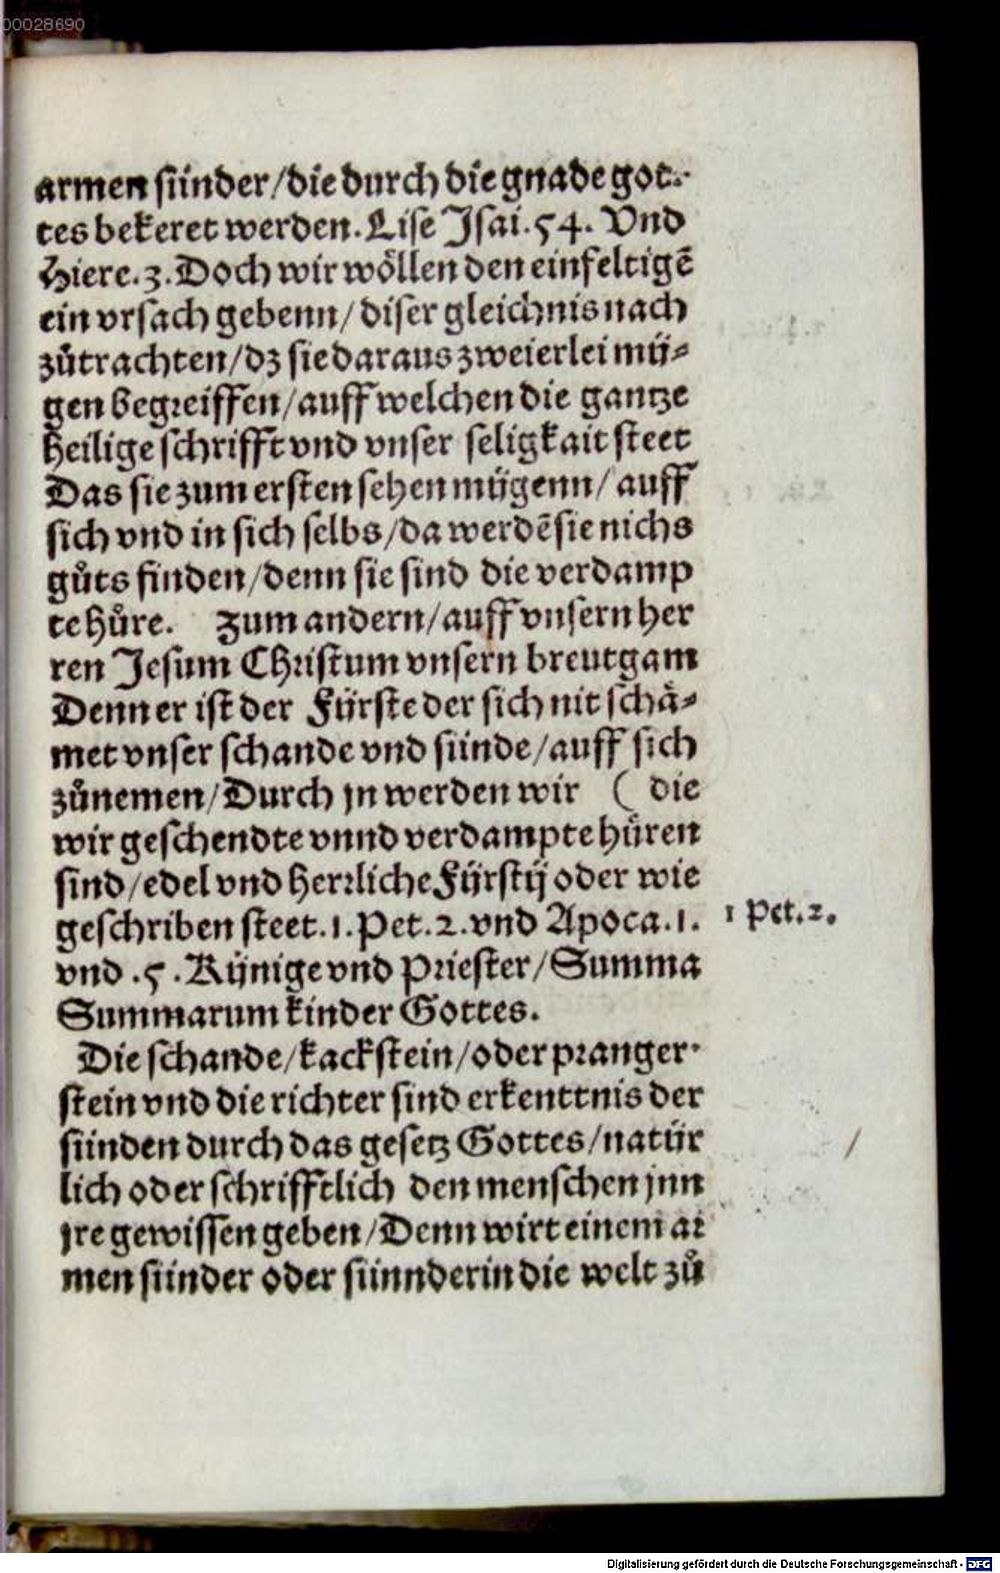 00028690
armen sünder/die durch die gnade got-
tes bekeret werden. Lise Jsai. 54. Vnd
Hiere. 3. Doch wir wöllen den einfeltigē
ein vrsach gebenn/ diser gleichnis nach
zůtrachten/dz sie daraus zweierlei mü-
gen begreiffen/auff welchen die gantze
heilige schrifft vnd vnser seligkait steet
Das sie zum ersten sehen mügenn/ auff
sich vnd in sich selbs/da werdē sie nichs
gůts finden/denn sie sind die verdamp
te hůre. Zum andern/auff vnsern her
ren Jesum Christum vnsern breutgam
Denn er ist der Fürste der sich nit schä-
met vnser schande vnd sünde/auff sich
zůnemen/Durch jn werden wir ( die
wir geschendte vnnd verdampte hůren
sind/edel vnd herrliche Fürstÿ oder wie
geschriben steet. 1. Pet. 2. vnd Apoca. 1.
1 Pet. 2.
vnd .5. Künige vnd Priester/Summa
Summarum kinder Gottes.
Die schande/kackstein/oder pranger-
stein vnd die richter sind erkenttnis der
sünden durch das gesetz Gottes/natür
lich oder schrifftlich den menschen jnn
jre gewissen geben/Denn wirt einem ar
men sünder oder sünnderin die welt zů
Digitalisierung gefördert durch die Deutsche Forschungsgemeinschaft - DFG